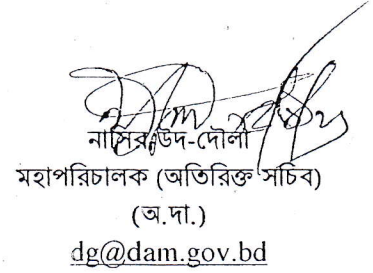 নাসির উদ-দৌলা
মহাপরিচালক (অতিরিক্ত সচিব)
(অ.দা.)
dg@dam.gov.bd